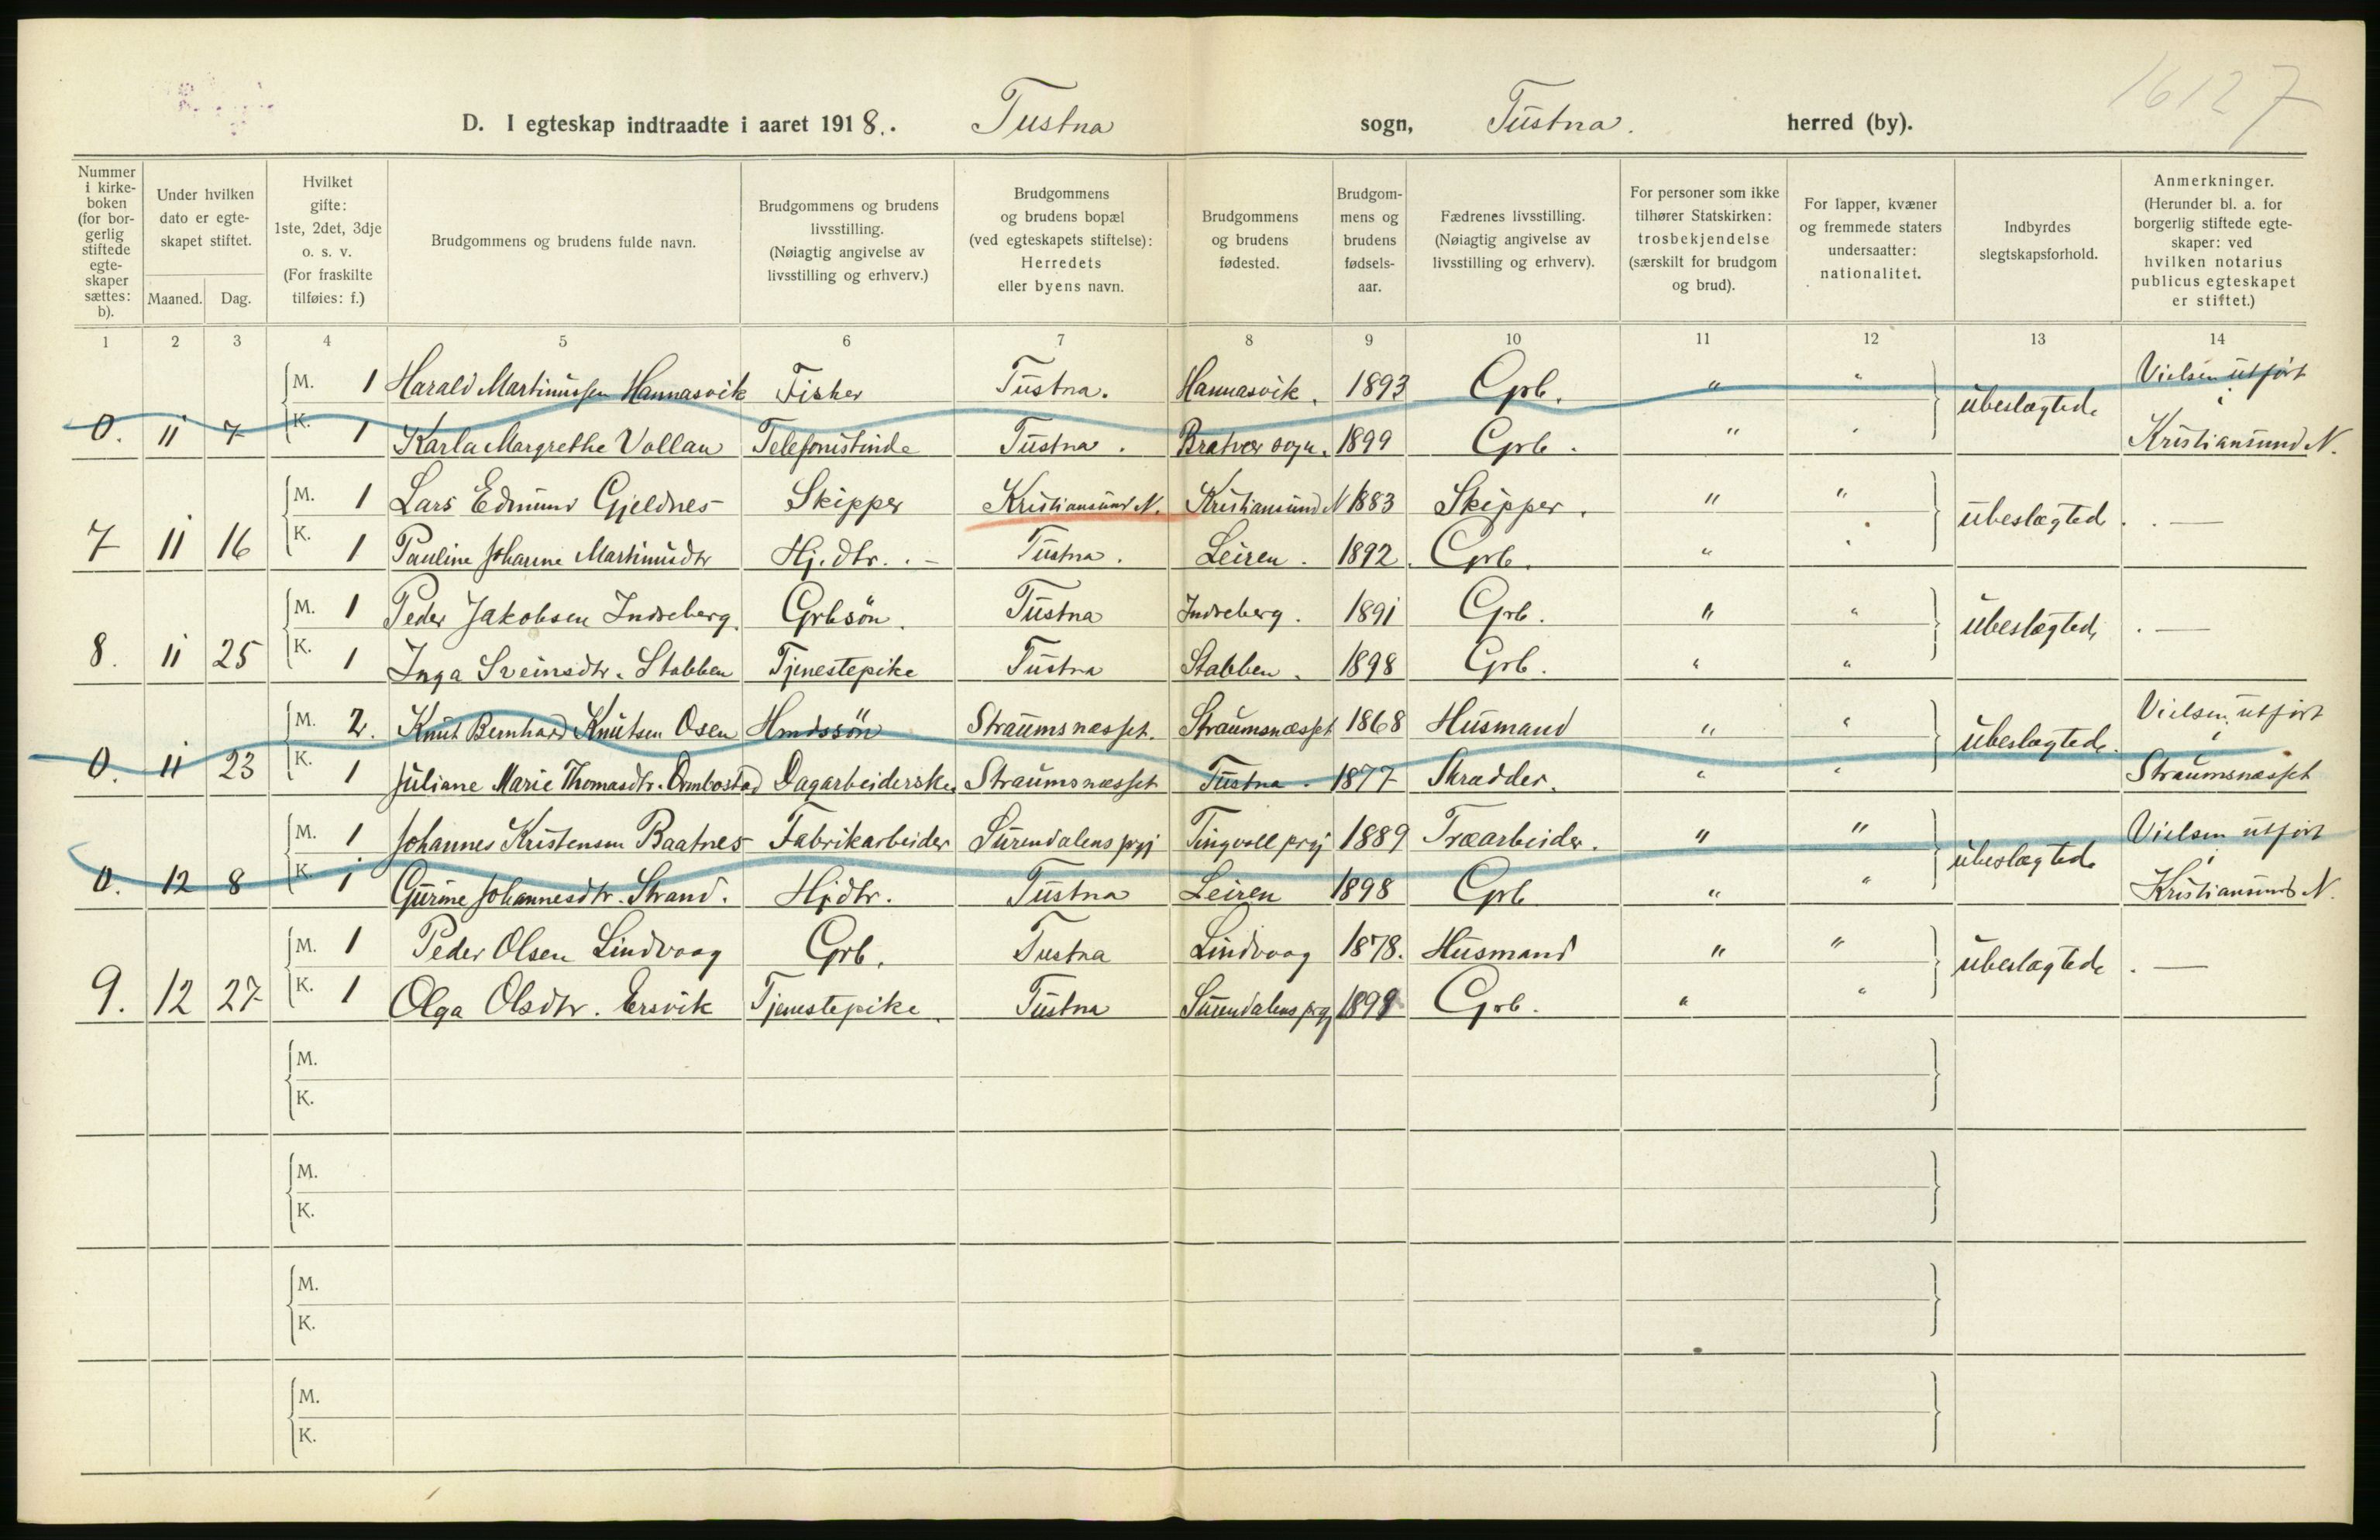 16127
D. I egteskap indtraadte i aaret 1918. Tustna sogn, Tustna. herred (by).
Nummer i kirke-boken (for bor-gerlig stiftede egte-skaper sættes: b).
Under hvilken dato er egte-skapet stiftet.
Maaned. Dag.
Hvilket gifte: 1ste, 2det, 3dje o. s. v. (For fraskilte tilføies: f.)
Brudgommens og brudens fulde navn.
Brudgommens og brudens livsstilling. (Nøiagtig angivelse av livsstilling og erhverv.)
Brudgommens og brudens bopæl (ved egteskapets stiftelse): Herredets eller byens navn.
Brudgommens og brudens fødested.
Brudgom-mens og brudens fødsels-aar.
Fædrenes livsstilling. (Nøiagtig angivelse av livsstilling og erhverv).
For personer som ikke tilhører Statskirken: trosbekjendelse (særskilt for brudgom og brud).
For lapper, kvæner og fremmede staters undersaatter: nationalitet.
Indbyrdes slegtskapsforhold.
Anmerkninger. (Herunder bl. a. for borgerlig stiftede egte-skaper: ved hvilken notarius publicus egteskapet er stiftet.)
1 2 3 4 5 6 7 8 9 10 11 12 13 14
M. 1 Harald Martinussen Hannasvik Fisker Tustna. Hannasvik. 1893 Grb. " " ubeslægtede Vielsen utført i
0. 11 7 K. 1 Karla Margrethe Vollan Telefonistinde Tustna. Bratvær sogn. 1899 Grb. " " Kristiansund N.
M. 1 Lars Edmund Gjeldnes Skipper Kristiansund N. Kristiansund N 1883 Skipper. " " ubeslægted. . —
7 11 16 K. 1 Pauline Johanne Martinusdtr Hj. dtr. . – Tustna. Leiren. 1892. Grb. " "
M. 1 Peder Jakobsen Indreberg. Grbsön. Tustna Indreberg. 1891 Grb. " " ubeslægted, . —
8. 11 25 K. 1 Inga Sveinsdtr. Stabben Tjenestepike Tustna Stabben. 1898 Grb. " "
M. 2. Knut Bernhard Knutsen Osen Hmdssön Straumsnæsset. Straumsnæsset 1868 Husmand " " ubeslægtede. Vielsen utført i
0. 11 23 K. 1 Juliane Marie Thomasdtr. Ormbostad Dagarbeiderske. Straumsnæsset Tustna. 1877 Skrædder. " " Straumsnæsset
M. 1 Johannes Kristensen Baatnes Fabrikarbeider Surendalens prgj Tingvoll prgj 1889 Træarbeider. " " ubeslægtede Vielsen utført i
0. 12 8 K. 1 Gurine Johannesdtr. Strand. Hjdtr. Tustna Leiren 1898 Grb " " Kristiansund N.
M. 1 Peder Olsen Lindvaag Grb. Tustna Lindvaag 1878. Husmand " " ubeslægtede . —
9. 12 27 K. 1 Olga Olsdtr. Ersvik Tjenestepike. Tustna Surendalens prgj 1899 Grb. " "
M.
K.
M.
K.
M.
K.
M.
K.